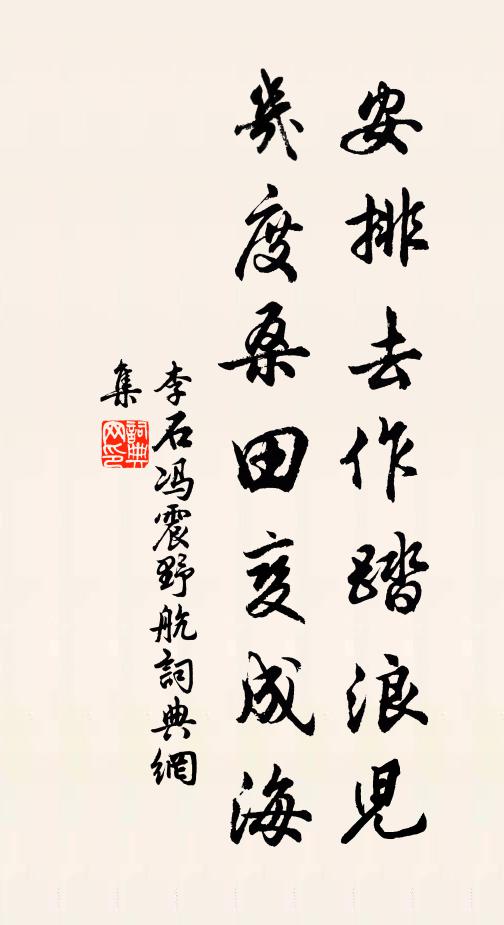 安排去作踏浪兒
幾度桑田变成海
李石冯震野航詞典網
集
詞典网印